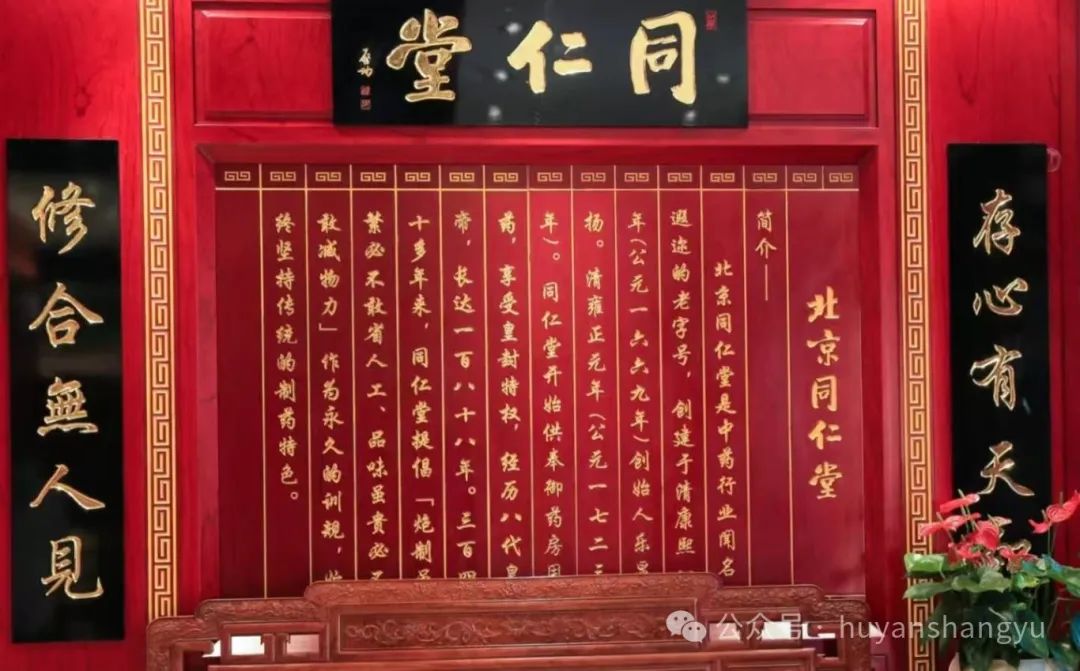 同仁堂
启功
存心有天
北京同仁堂
简介——
北京同仁堂是中药行业闻名
遐迩的老字号，创建于清康熙
年(公元一六六九年)创始人乐
扬。清雍正元年(公元一七二三
年)。同仁堂开始供奉御药房
药，享受皇封特权，经历八代皇
帝，长达一百八十八年。三百四
十多年来，同仁堂提倡「炮制虽
繁必不敢省人工、品味虽贵必不
敢减物力」作为永久的训规，始
终坚持传统的制药特色。
修合無人見
公众号：huyanshangyu